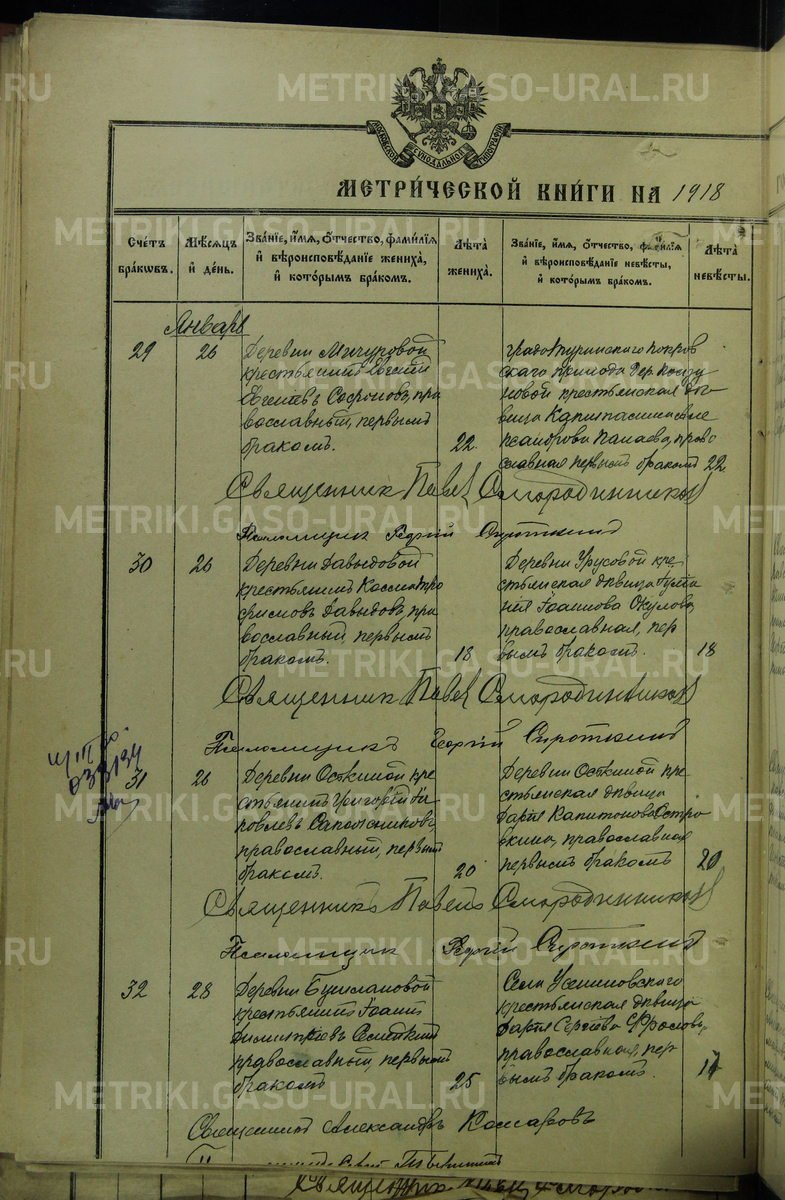 МОСКОВСКОЙ СѴНОДАЛЬНОЙ ТИПОГРАФІИ
МЕТРИ́ЧЕСКОЙ КНИ́ГИ НА 1918
Счéтъ бра́кѡвъ.
Мѣ́сяцъ и де́нь.
Зва́нїе, и́мя, ѻ́тчество, фами́лїя и вѣроисповѣ́данїе жениха̀, и кото́рымъ бра́комъ.
Лѣ́та жениха̀.
Зва́нїе, и́мя, ѻ́тчество, фами́лїя и вѣроисповѣ́данїе невѣ́сты, и кото́рымъ бра́комъ.
Лѣ́та невѣ́сты.
Январь
29 26
Деревни Мичуровой
крестьянинъ Евгеній
Сафроновъ, пра
вославный, первымъ
бракомъ. 22
градо Туринского Покров
скаго прихода дер.
новой крестьянская дѣ
вица
Панаева, право
славная первымъ бракомъ 22
Священник Павел Смородинников
Псаломщик Георгій Сироткинъ
30 26
Деревни Давыдовой
крестьянинъ Косма Тро
фимовъ Давыдовъ, пра
вославный первымъ
бракомъ. 18
Деревни Урусовой кре
стьянская дѣвица Іулiа
нія Іоаннова Окулова,
православная, пер
вымъ бракомъ. 18
Священник Павел Смородинников
Псаломщикъ Георгій Сироткинъ
31 26
Деревни Осткиной кре
стьянинъ Григорій Я
ковлевъ Сапожниковъ,
православный, первымъ
бракомъ. 20
Деревни Осткиной кре
стьянская дѣвица
Дарія Капитонова Остро
кина, православная
первымъ бракомъ 20
Священникъ Павелъ Смородинников
Псаломщик Георгій Сироткинъ
32 28
Деревни Бушлановой
крестьянинъ Іоаннъ
Димитріевъ
православный, первымъ
бракомъ 25
Села Усениновскаго
крестьянская дѣвица
Дарія Сергѣева Фролова,
православная, пер
вымъ бракомъ. 17
Священникъ Александръ Комаровъ
METRIKI.GASO-URAL.RU